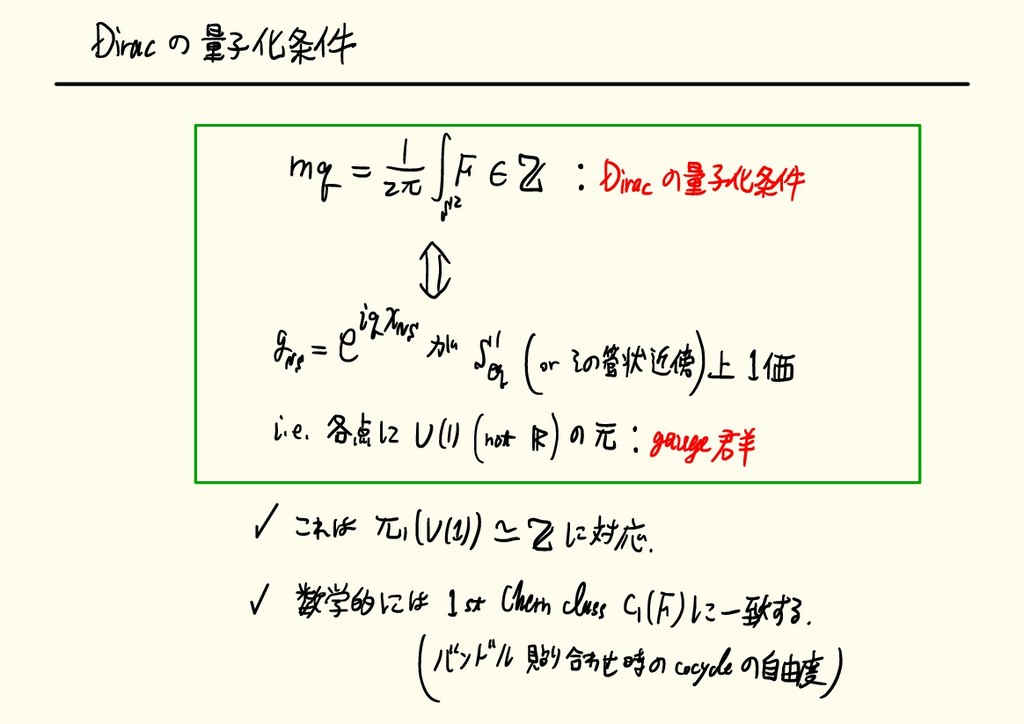 Diracの量子化条件
mq = 1/2π ∫_{S²} F ∈ ℤ : Diracの量子化条件
⇕
g_{NS} = e^{iqχ_{NS}} が S¹_{eq} (or その管状近傍)上 1価
i.e. 各点に U(1) (not ℝ) の元 : gauge群
✓ これは π₁(U(1)) ≃ ℤ に対応.
✓ 数学的には 1st Chern class C₁(F)に一致する.
(バンドル貼り合わせ時の cocycle の自由度)